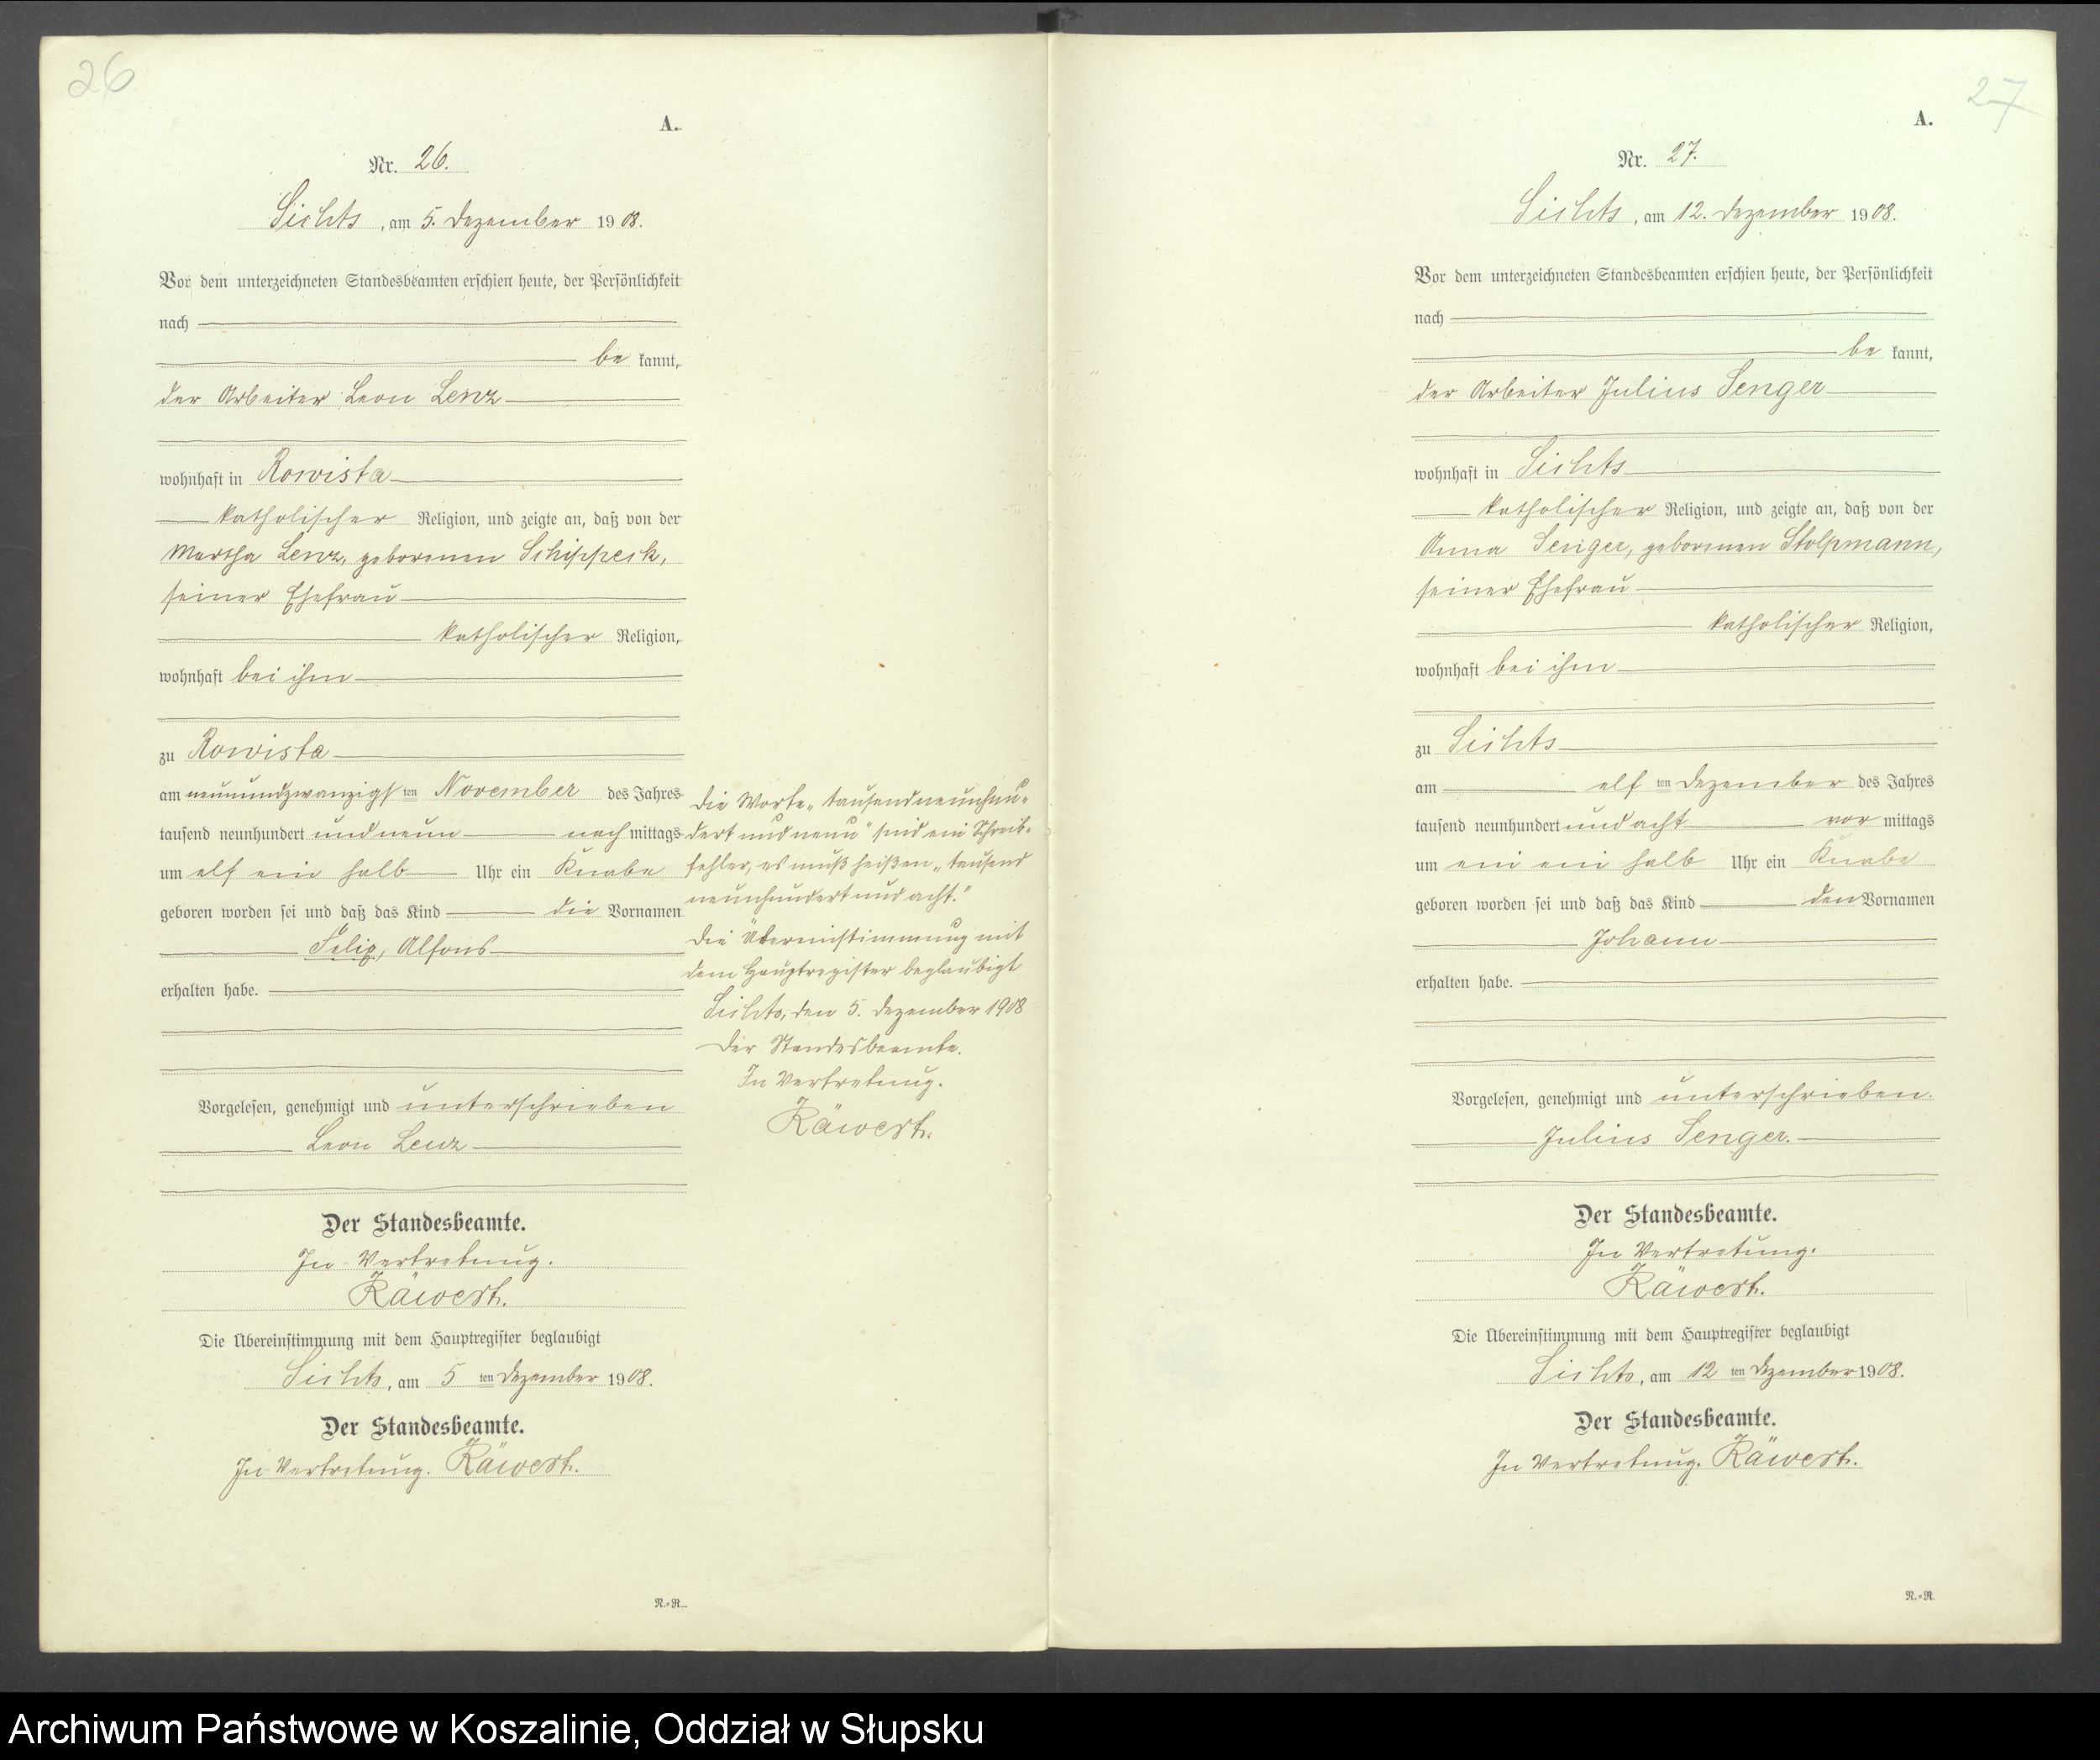 26
A.
Nr. 26.
Sichts, am 5. Dezember 1908.
Vor dem unterzeichneten Standesbeamten erschien heute, der Persönlichkeit
nach
be kannt,
der Arbeiter Leon Lenz
wohnhaft in Rowista
katholischer Religion, und zeigte an, daß von der
Martha Lenz, geborenen Schippeck,
seiner Ehefrau
katholischer Religion,
wohnhaft bei ihm
zu Rowista
am neunundzwanzigsten November des Jahres
tausend neunhundert und neun nach mittags
um elf ein halb Uhr ein Knabe
geboren worden sei und daß das Kind die Vornamen
Felix, Alfons
erhalten habe.
Vorgelesen, genehmigt und unterschrieben
Leon Lenz
Der Standesbeamte.
In Vertretung.
Räwert.
Die Übereinstimmung mit dem Hauptregister beglaubigt
Sichts, am 5 ten Dezember 1908.
Der Standesbeamte.
In Vertretung. Räwert.
N.=R.
Die Worte „tausendneunhun-
dert und neun" sind ein Schreib-
fehler, es muß heißen „tausend
neunhundert und acht."
Die Übereinstimmung mit
dem Hauptregister beglaubigt
Sichts, den 5. Dezember 1908
Der Standesbeamte.
In Vertretung.
Räwert.
27
A.
Nr. 27.
Sichts, am 12. Dezember 1908.
Vor dem unterzeichneten Standesbeamten erschien heute, der Persönlichkeit
nach
be kannt,
der Arbeiter Julius Senger
wohnhaft in Sichts
katholischer Religion, und zeigte an, daß von der
Anna Senger, geborenen Stolpmann,
seiner Ehefrau
katholischer Religion,
wohnhaft bei ihm
zu Sichts
am elf ten Dezember des Jahres
tausend neunhundert und acht vor mittags
um ein ein halb Uhr ein Knabe
geboren worden sei und daß das Kind den Vornamen
Johann
erhalten habe.
Vorgelesen, genehmigt und unterschrieben.
Julius Senger.
Der Standesbeamte.
In Vertretung.
Räwert.
Die Übereinstimmung mit dem Hauptregister beglaubigt
Sichts, am 12 ten Dezember 1908.
Der Standesbeamte.
In Vertretung. Räwert.
N.=R.
Archiwum Państwowe w Koszalinie, Oddział w Słupsku